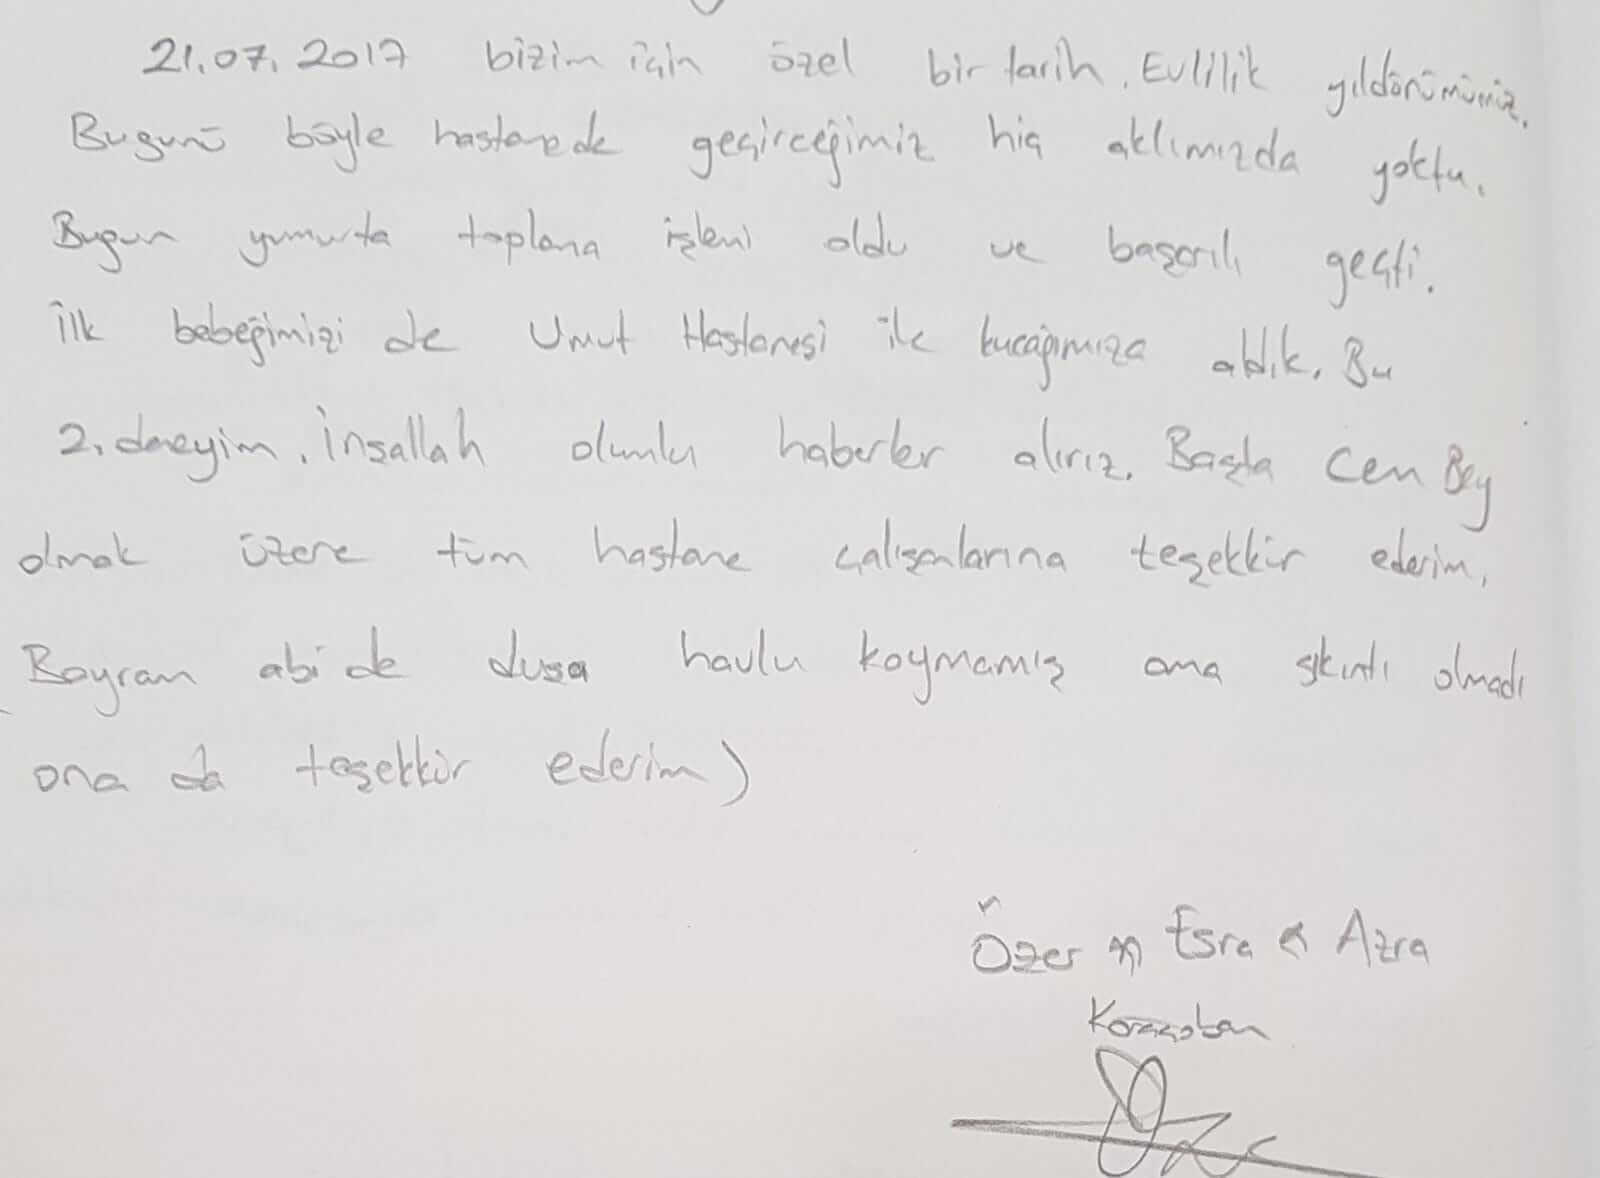 21.07.2017 bizim için özel bir tarih. Evlilik yıldönümümüz.
Bugünü böyle hastanede geçirceğimiz hiç aklımızda yoktu.
Bugun yumurta toplama işlemi oldu ve başarılı geçti.
ilk bebeğimizi de Umut Hastanesi ile kucağımıza aldık. Bu
2. deneyim. İnşallah olumlu haberler alırız. Başta Cem Bey
olmak üzere tüm hastane çalışanlarına teşekkür ederim.
Bayram abi de dusa havlu koymamış ama sıkıntı olmadı
ona da teşekkür ederim)
Özer Esra & Azra